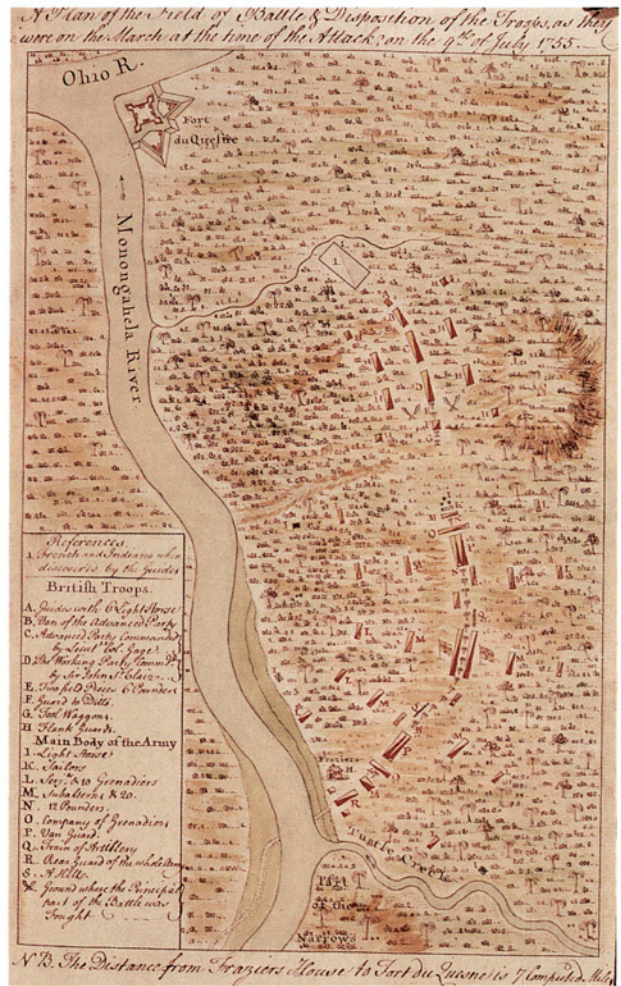 A Plan of the Field of Battle & Disposition of the Troops, as they
were on the March at the time of the Attack on the 9th of July 1755.
Ohio R.
Fort
du Quesne
Monongahela River
1
References.
1. French and Indians when
discovered by the Guides
British Troops.
A. Guides with 6 Light Horse
B. Van of the Advanced Party
C. Advanced Party Commanded
by Lieut Col. Gage.
D. The Working Party Commd
by Sir John St Clair.
E. Two field Pieces 6 Pounders
F. Guard to Ditto.
G. Tool Waggons.
H Flank Guards.
Main Body of the Army
I. Light Horse
K. Sailors
L. Serjt & 10 Grenadiers
M. Subaltern & 20.
N. 12 Pounders.
O. Company of Grenadiers
P. Van Guard.
Q. Train of Artillery
R. Rear Guard of the whole Army
S. A Hill.
X Ground where the Principal
part of the Battle was
Fought
C
D
H
H
M
O
L
M
L
M
L
M
R
Q
R
Fraziers
H.
Turtle Creek
Part
of the
Narrows
N B. The Distance from Fraziers House to Fort du Quesne is 7 Computed Miles